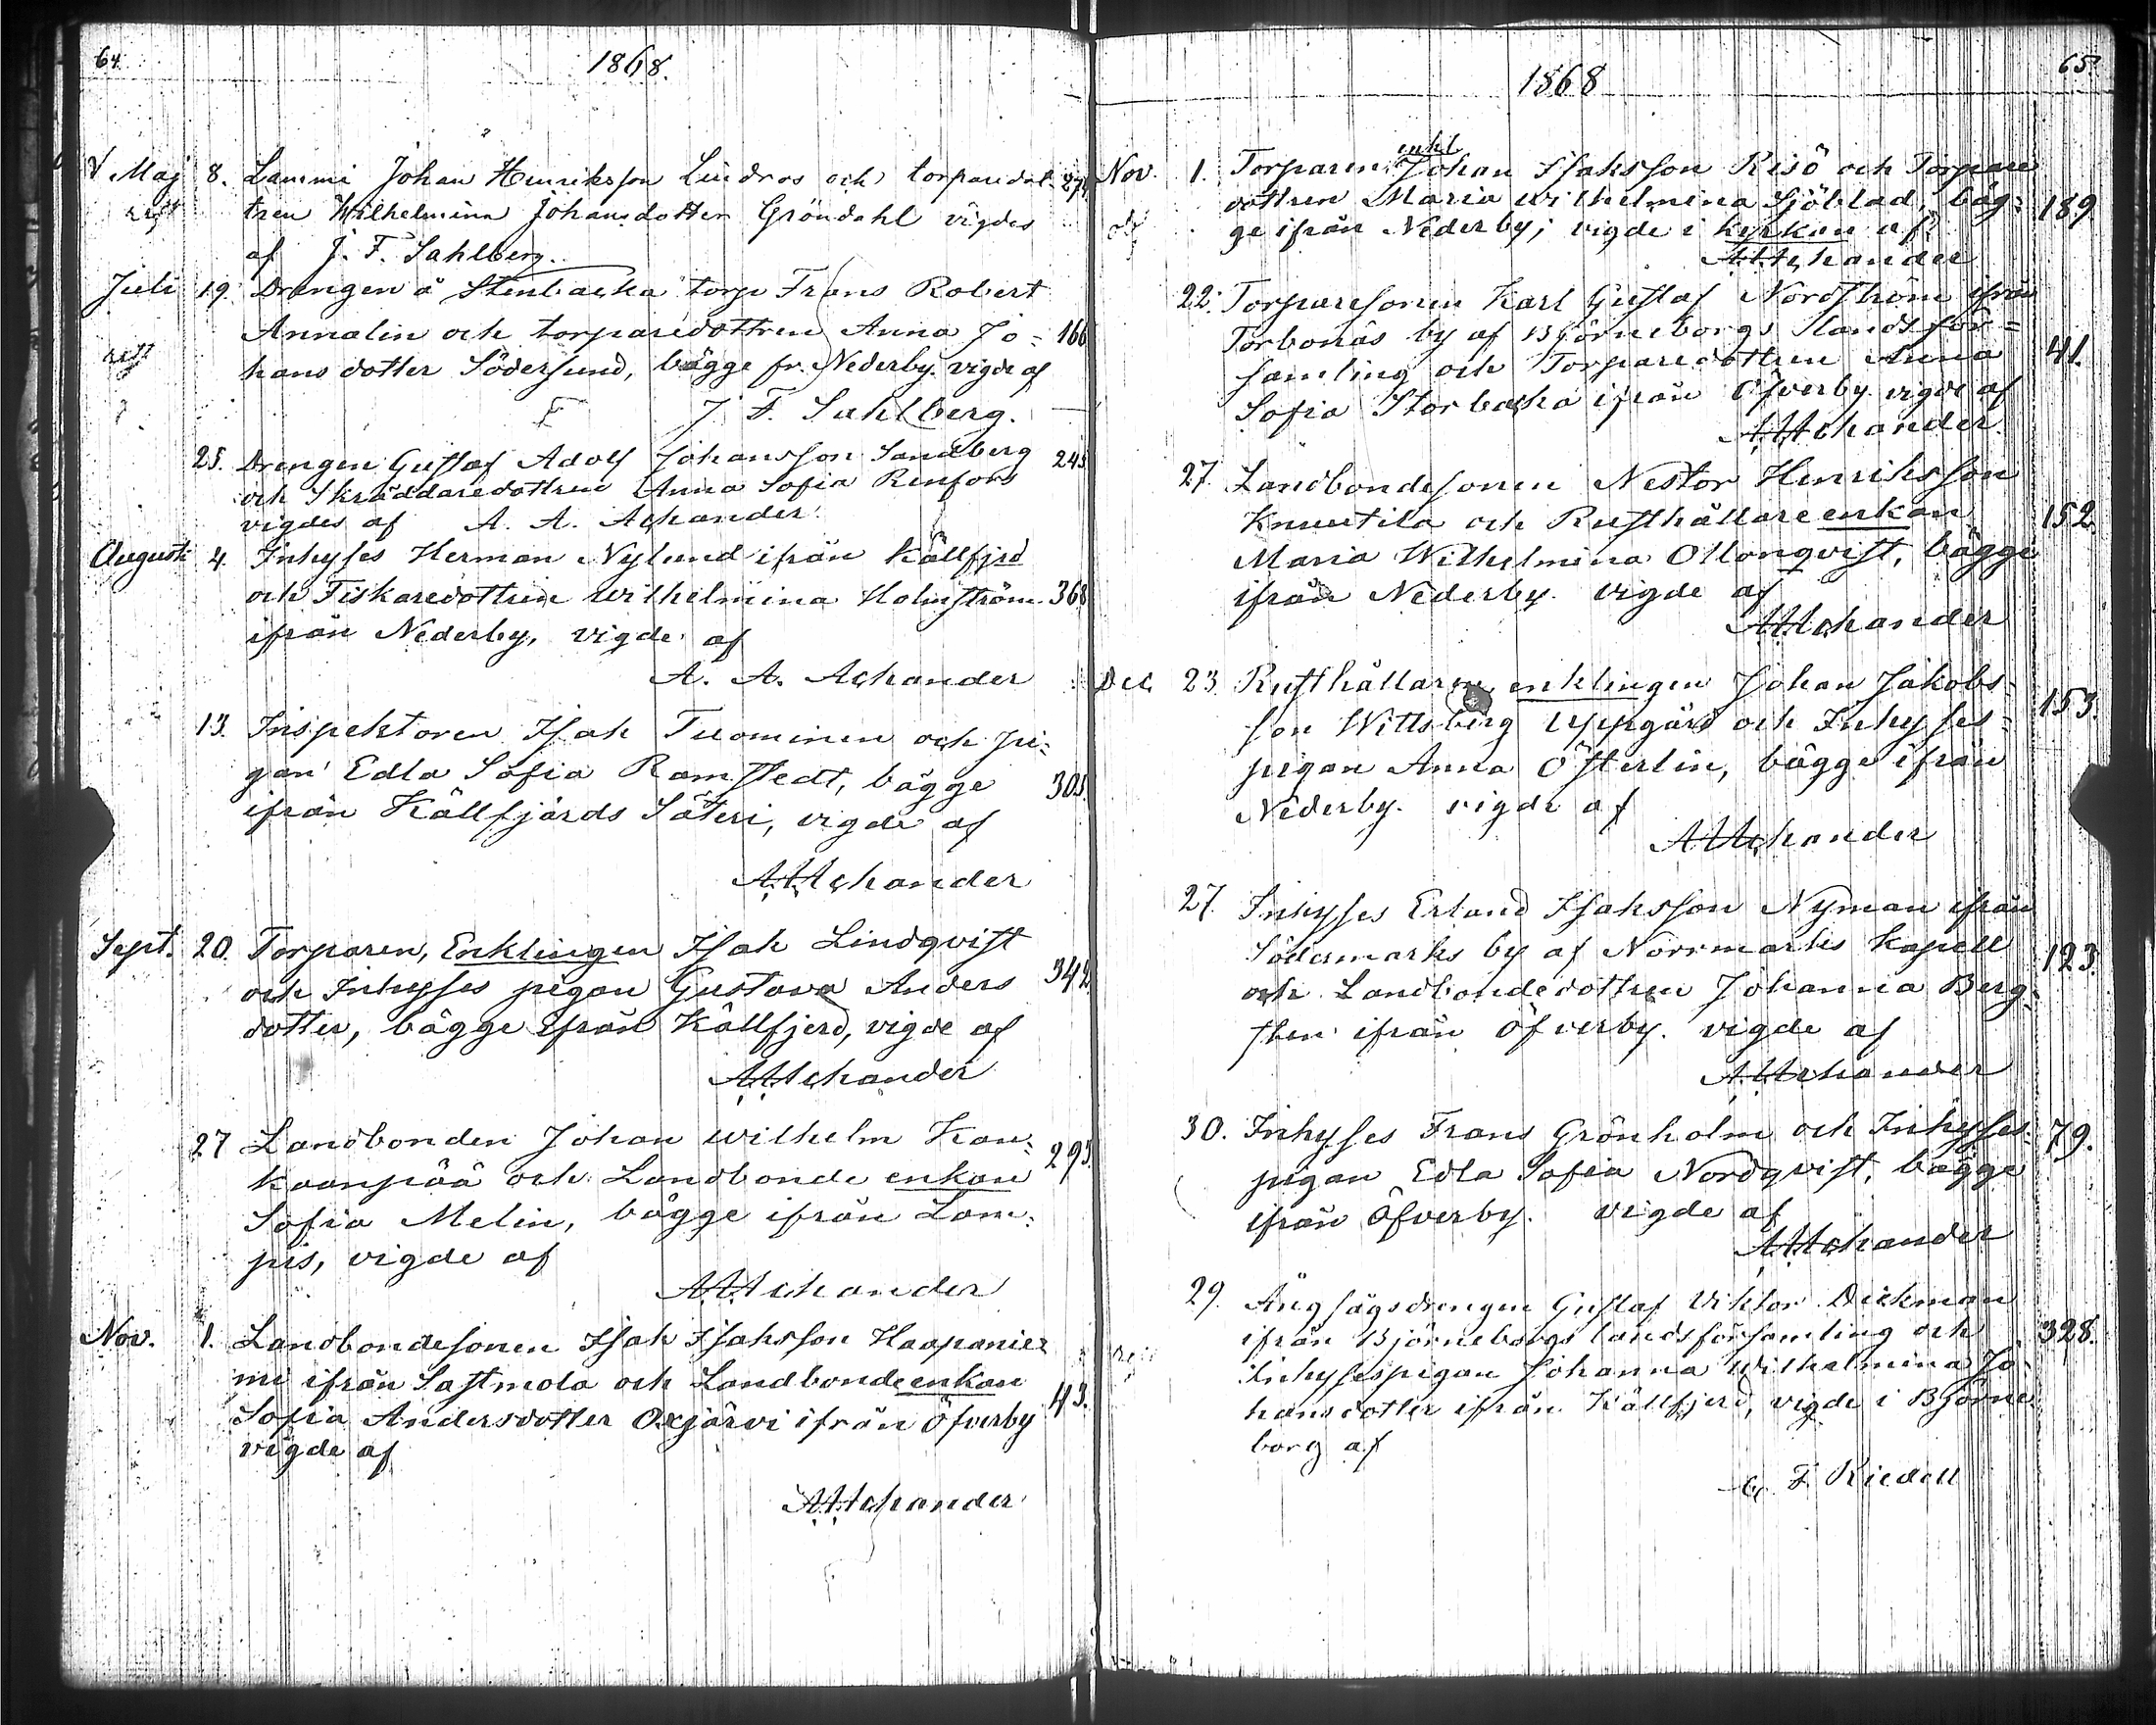 64.
1868.
Maj 8. Lammi Johan Henriksson Lindros och torparedot- 274
tren Wilhelmina Johansdotter Gröndahl vigdes
af J. F. Sahlberg.
Juli 19. Drengen å Stenbacka torp Frans Robert
Annalin och torparedottren Anna Jo- 166
hansdotter Södersund, bägge fr. Nederby vigde af
J. F. Sahlberg.
25. Drengen Gustaf Adolf Johansson Sandberg 245
och Skräddaredottren Anna Sofia Renfors
vigdes af A. A. Achander.
Augusti 4. Inhyses Herman Nylund ifrån Källfjerd
och Fiskaredottren Wilhelmina Holmström 368
ifrån Nederby, vigde af
A. A. Achander
13. Inspektoren Isak Tuominen och pi-
gan Edla Sofia Ramstedt, bägge 305.
ifrån Källfjärds Säteri, vigde af
A. A. Achander
Sept. 20. Torparen, Enklingen Isak Lindqvist
och Inhyses pigan Gustava Anders 342
dotter, bägge ifrån Källfjerd, vigde af
A. A. Achander
27 Landbonden Johan Wilhelm Kan-
kaanpää och Landbonde enkan 293.
Sofia Melin, bägge ifrån Lam-
pis, vigde af
A. A. Achander
Nov. 1. Landbondesonen Isak Isaksson Haapanie-
mi ifrån Sastmola och Landbondeenkan
Sofia Andersdotter Oxjärvi ifrån Öfverby 43.
vigde af
A. A. Achander
65.
1868
enkl.
Nov. 1. Torparen Johan Isaksson Risö och Torpare
dottren Maria Wilhelmina Sjöblad, bäg- 189
ge ifrån Nederby; vigde i kyrkan af
A. A. Achander
22. Torparesonen Karl Gustaf Nordström ifrån
Torbonäs by af Björneborgs landsför=
samling och Torparedottren Anna 41.
Sofia Storbacka ifrån Öfverby vigde af
A. A. Achander.
27. Landbondesonen Nestor Henriksson
Knuutila och Rusthållareenkan 152
Maria Wilhelmina Ollonqvist, bägge
ifrån Nederby. vigde af
A. A. Achander
Dec. 23. Rusthållaren, enklingen Johan Jakobs-
son Wittsberg Uppgård och Inhyses= 153.
pigan Anna Österlin, bägge ifrån
Nederby. vigde af
A. A. Achander
27. Inhyses Erland Isaksson Nyman ifrån
Södermarks by af Norrmarks kapell 123.
och Landbondedottren Johanna Berg-
sten ifrån Öfverby. vigde af
A. A. Achander
30. Inhyses Frans Grönholm och Inhyses- 79.
pigan Edla Sofia Nordqvist, bägge
ifrån Öfverby. vigde af
A. A. Achander
29. Ångsågsdrengen Gustaf Viktor Dickman
ifrån Björneborgs landsförsamling och 328.
Inhysespigan Johanna Wilhelmina Jo-
hansdotter ifrån Källfjerd, vigde i Björne-
borg af
F. Riedell